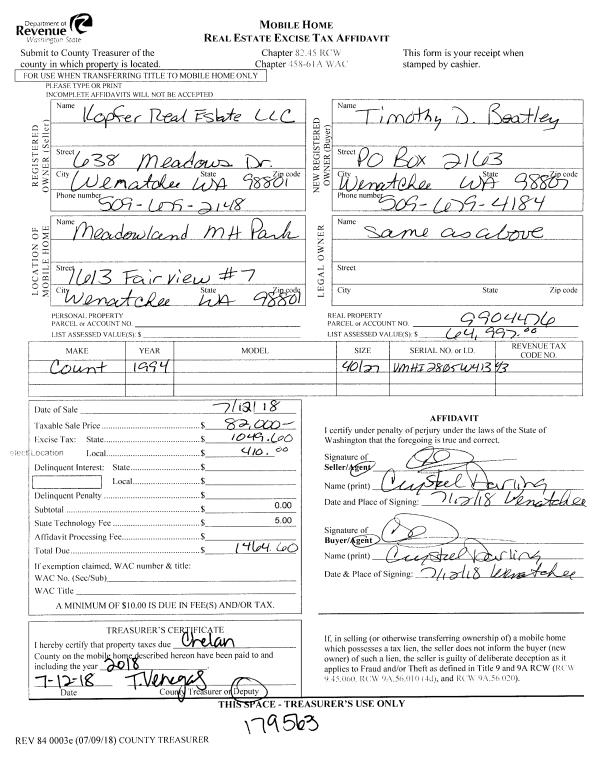 Department of
Revenue
Washington State
MOBILE HOME
REAL ESTATE EXCISE TAX AFFIDAVIT
Submit to County Treasurer of the
county in which property is located.
Chapter 82.45 RCW
Chapter 458-61A WAC
This form is your receipt when
stamped by cashier.
FOR USE WHEN TRANSFERRING TITLE TO MOBILE HOME ONLY
PLEASE TYPE OR PRINT
INCOMPLETE AFFIDAVITS WILL NOT BE ACCEPTED
REGISTERED
OWNER (Seller)
Name
Kopfer Real Estate LLC
Street 638 Meadows Dr.
City State Zip code
Wenatchee WA 98801
Phone number
509-679-2148
NEW REGISTERED
OWNER (Buyer)
Name
Timothy D. Beatley
Street
PO Box 2163
City State Zip code
Wenatchee WA 98807
Phone number
509-679-4184
LOCATION OF
MOBILE HOME
Name
Meadowland MH Park
Street
1613 Fairview #7
City State Zip code
Wenatchee WA 98801
LEGAL OWNER
Name
Same as above
Street
City State Zip code
PERSONAL PROPERTY
PARCEL or ACCOUNT NO.
LIST ASSESSED VALUE(S): $
REAL PROPERTY
PARCEL or ACCOUNT NO. 9904476
LIST ASSESSED VALUE(S): $ 64,997.00
MAKE YEAR MODEL SIZE SERIAL NO. or I.D. REVENUE TAX CODE NO.
Count 1994 40/27
Date of Sale 7/12/18
Taxable Sale Price $ 82,000-
Excise Tax: State $ 1049.60
elect Location Local $ 410.00
Delinquent Interest: State $
Local $
Delinquent Penalty $
Subtotal $ 0.00
State Technology Fee $ 5.00
Affidavit Processing Fee $
Total Due $ 1464.60
If exemption claimed, WAC number & title:
WAC No. (Sec/Sub)
WAC Title
A MINIMUM OF $10.00 IS DUE IN FEE(S) AND/OR TAX.
AFFIDAVIT
I certify under penalty of perjury under the laws of the State of
Washington that the foregoing is true and correct.
Signature of
Seller/Agent
Name (print) Crystel Darling
Date and Place of Signing: 7/12/18 Wenatchee
Signature of
Buyer/Agent
Name (print) Crystel Darling
Date & Place of Signing: 7/12/18 Wenatchee
TREASURER'S CERTIFICATE
I hereby certify that property taxes due Chelan
County on the mobile home described hereon have been paid to and
including the year 2018
7-12-18 T. Venegas
Date County Treasurer or Deputy
If, in selling (or otherwise transferring ownership of) a mobile home
which possesses a tax lien, the seller does not inform the buyer (new
owner) of such a lien, the seller is guilty of deliberate deception as it
applies to Fraud and/or Theft as defined in Title 9 and 9A RCW (RCW
9.45.060, RCW 9A.56.010 (4d), and RCW 9A.56.020).
THIS SPACE - TREASURER'S USE ONLY
179563
REV 84 0003e (07/09/18) COUNTY TREASURER